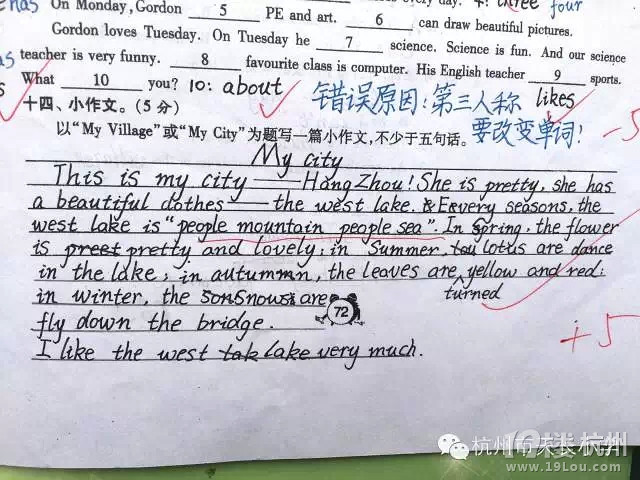 On Monday, Gordon 5 PE and art. 6 can draw beautiful pictures. three four
Gordon loves Tuesday. On Tuesday he 7 science. Science is fun. And our science
teacher is very funny. 8 favourite class is computer. His English teacher 9 sports.
What 10 you? 10: about likes
十四、小作文。(5 分) 错误原因:第三人称
以“My Village”或“My City”为题写一篇小作文,不少于五句话。 要改变单词! -5
My city
This is my city —— HangZhou! She is pretty, she has
a beautiful clothes —— the west lake. Every seasons, the
west lake is "people mountain people sea". In Spring, the flower
is pretty and lovely; in Summer, lotus are dance
in the lake; in autumn, the leaves are turned yellow and red;
in winter, the snows are
72
fly down the bridge.
I like the west lake very much.
+5
杭州
19楼 杭州
www.19Lou.com